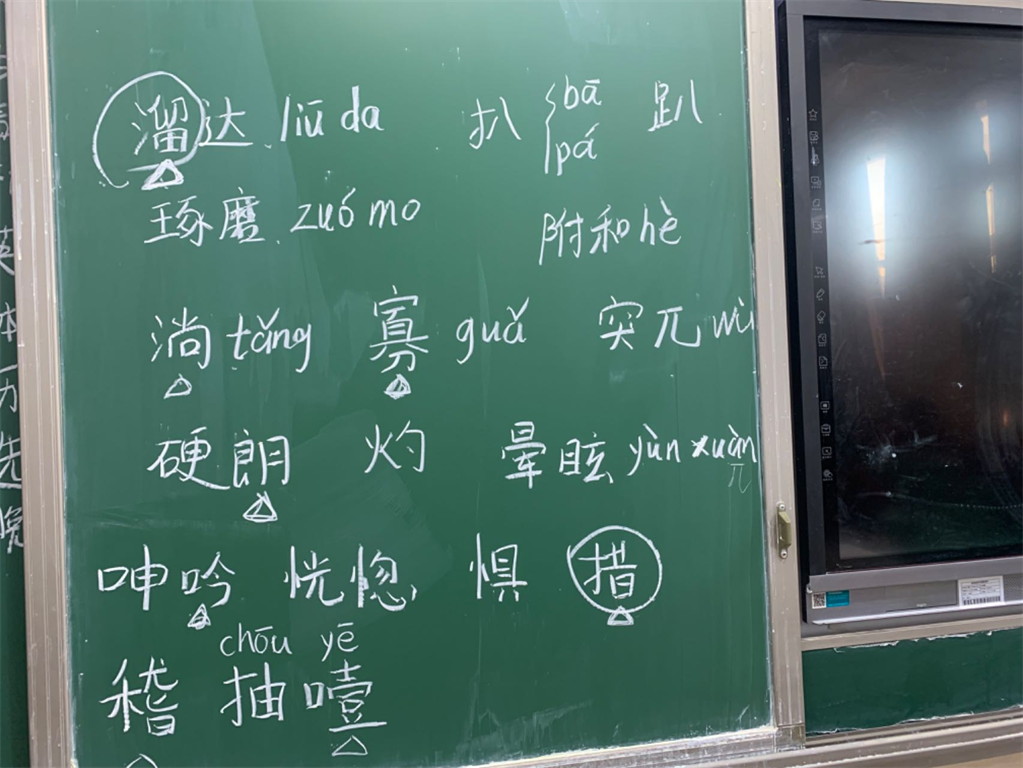 溜达 liū da 扒 bā pá 趴
琢磨 zuó mo 附和 hè
淌 tǎng 寡 guǎ 突兀 wù
硬朗 灼 晕眩 yùn xuàn
呻吟 恍惚 惧 措
chōu yē
稽 抽噎